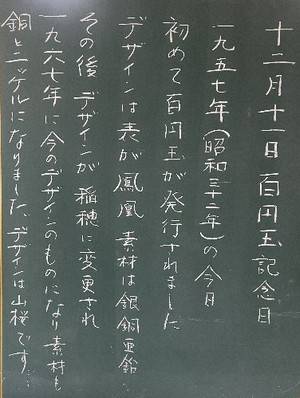 十二月十一日 百円玉記念日
一九五七年(昭和三十二年)の今日
初めて百円玉が発行されました
デザインは表が鳳凰 素材は銀銅亜鉛…
その後 デザインが 稲穂に変更され
一九六七年に今のデザインのものになり素材も
銅とニッケルになりました。デザインは山桜です…